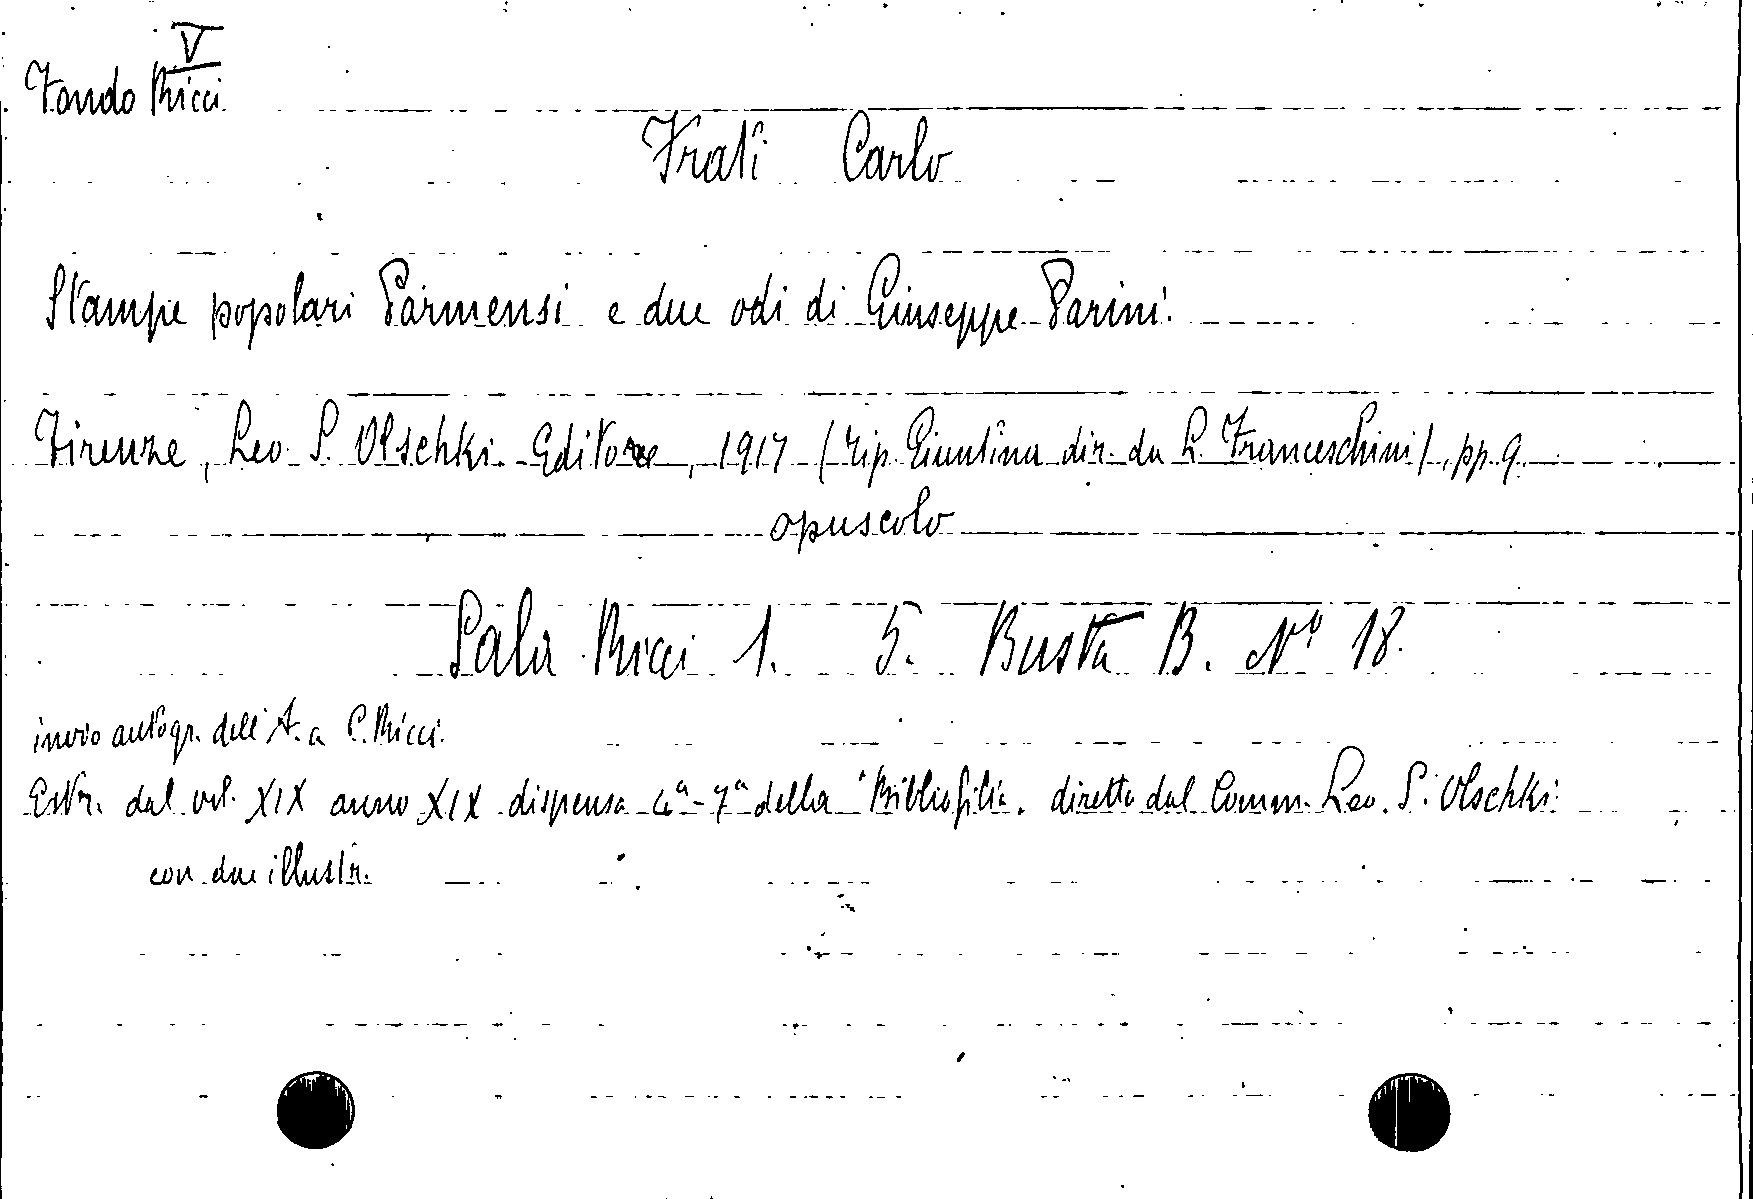 V
Fondo Ricci
Frati Carlo
Stampe popolari Parmensi e due odi di Giuseppe Parini.
Firenze, Leo S. Olschki Editore, 1917 (tip. Giuntina dir. da L. Franceschini), pp. 9
opuscolo
Sala Ricci 1. 5. Busta B. Nº 18.
invio autogr. dell'A. a C. Ricci.
Estr. dal vol. XIX anno XIX dispensa 4ª-7ª della "Bibliofilia. diretta dal Comm. Leo. S. Olschki.
con due illustr.